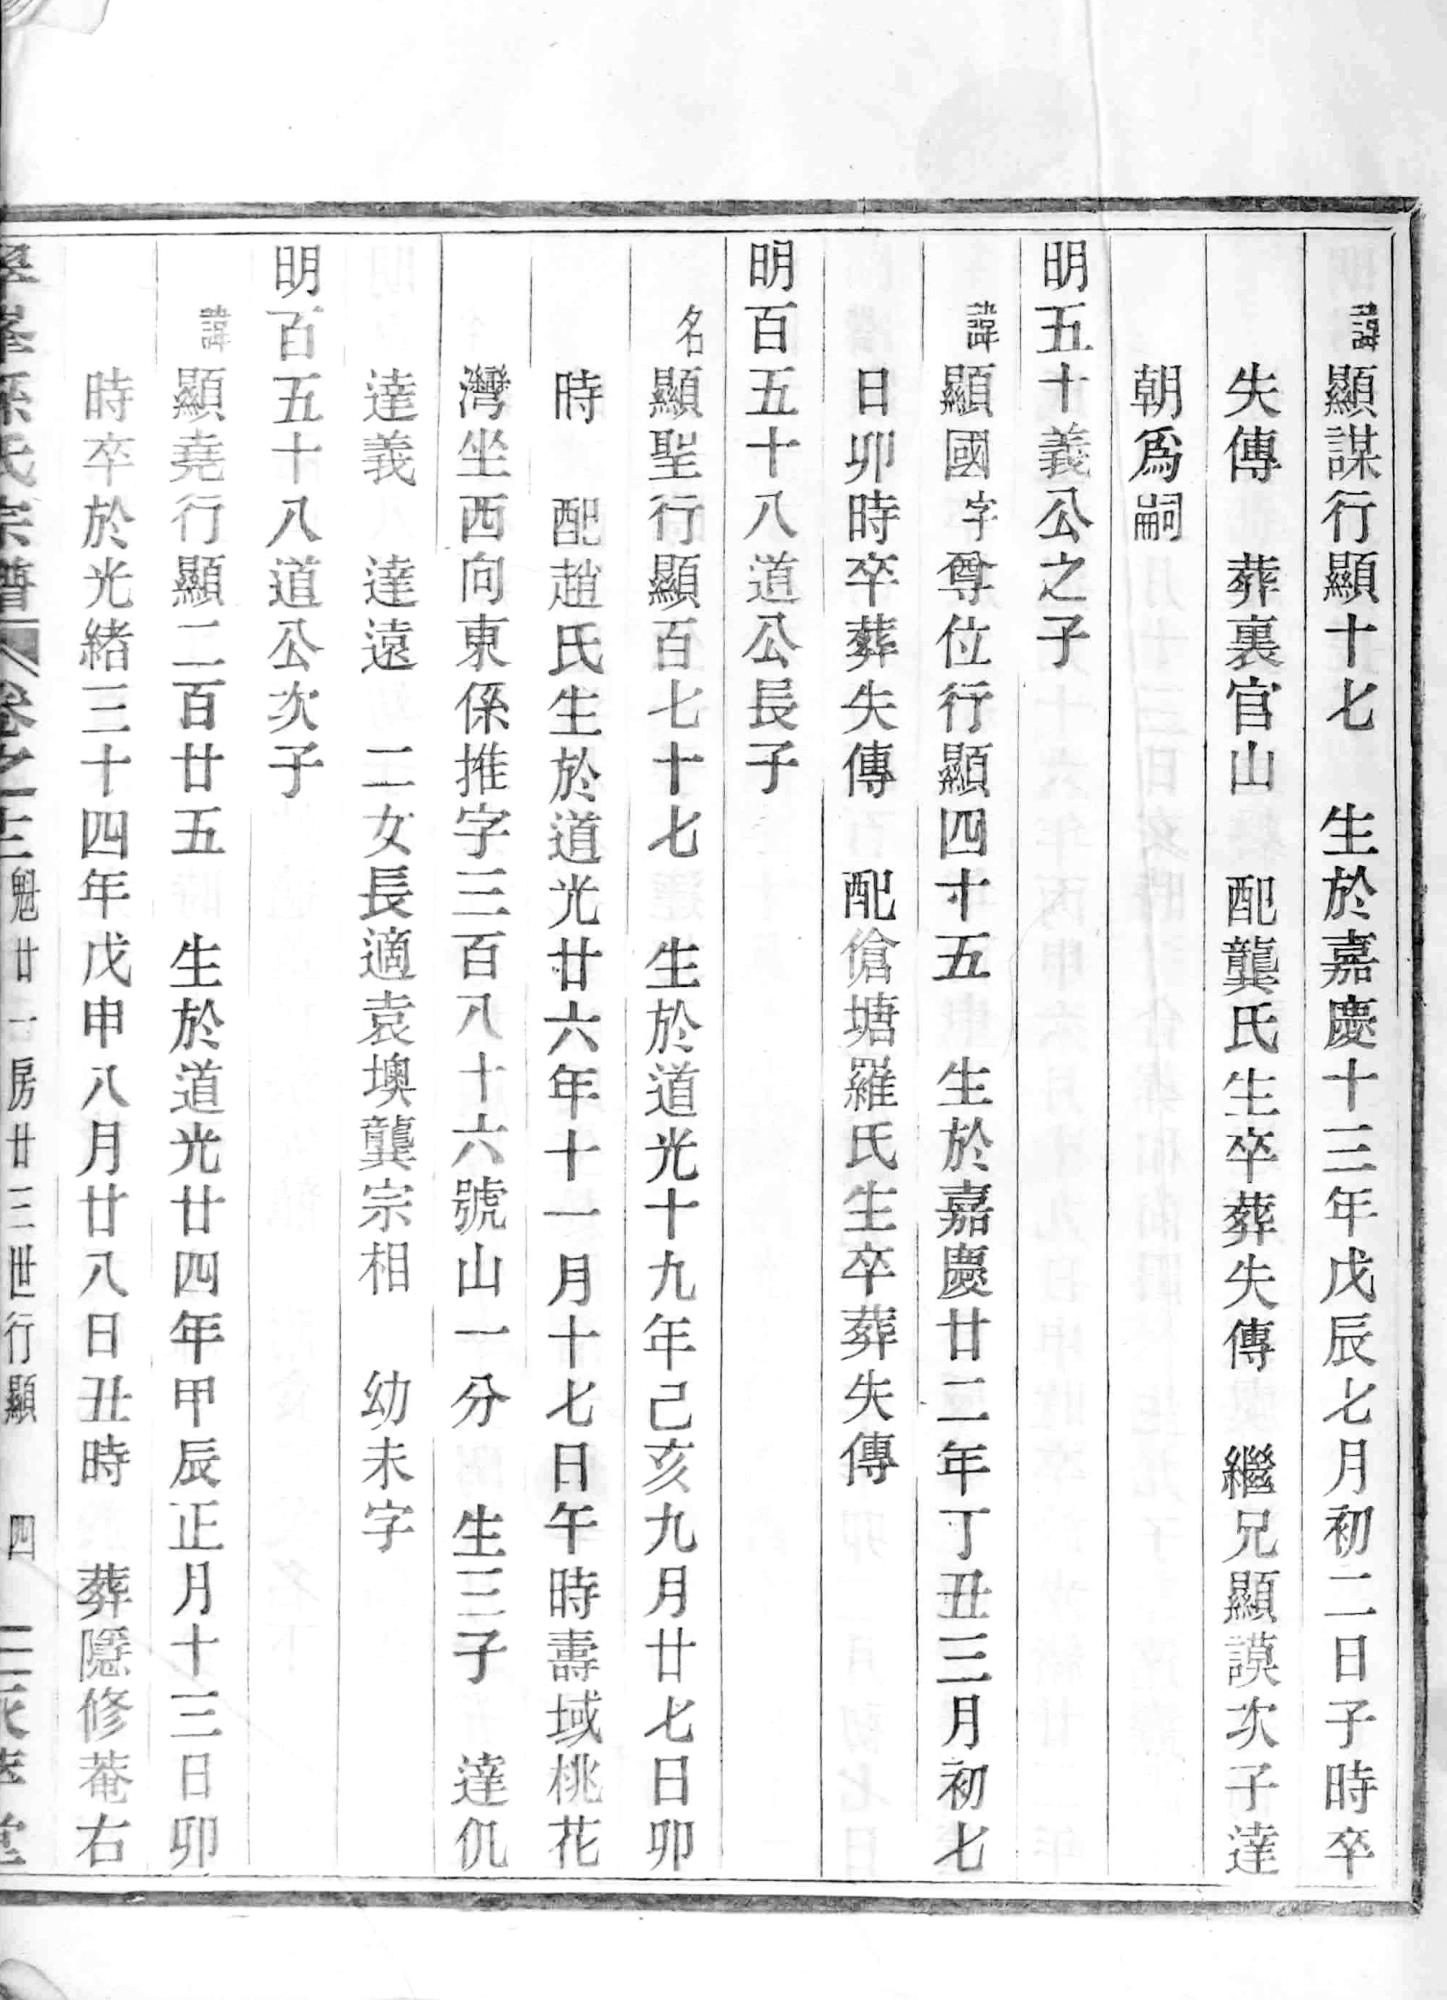 諱顯謀行顯十七　生於嘉慶十三年戊辰七月初二日子時卒
失傳　葬裏官山　配龔氏生卒葬失傳　繼兄顯謨次子達
朝爲嗣
明五十義公之子
諱顯國字尊位行顯四十五　生於嘉慶廿二年丁丑三月初七
日卯時卒葬失傳　配傖塘羅氏生卒葬失傳
明百五十八道公長子
名顯聖行顯百七十七　生於道光十九年己亥九月廿七日卯
時　配趙氏生於道光廿六年十一月十七日午時壽域桃花
灣坐西向東係推字三百八十六號山一分　生三子　達仉
達義　達遠　二女長適袁墺龔宗相　幼未字
明百五十八道公次子
諱顯堯行顯二百廿五　生於道光廿四年甲辰正月十三日卯
時卒於光緒三十四年戊申八月廿八日丑時　葬隱修菴右
孫氏宗譜　卷之　魁廿　房廿三世行顯　四　堂